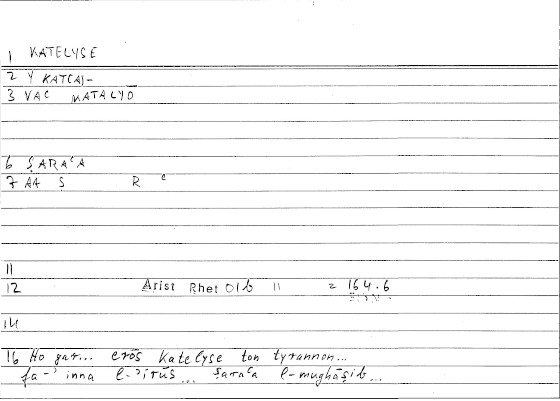 1 KATELYSE
2 Y KAT(AI-
3 VAC KATALYŌ
6 ṢARAʿA
7 AA Ṣ R ʿ
11
12 Arist Rhet 01b 11 = 164.6
14
16 Ho gar... erōs katelyse ton tyrannon...
fa-ʾinna l-ʾirūs... ṣaraʿa l-mughāṣib...